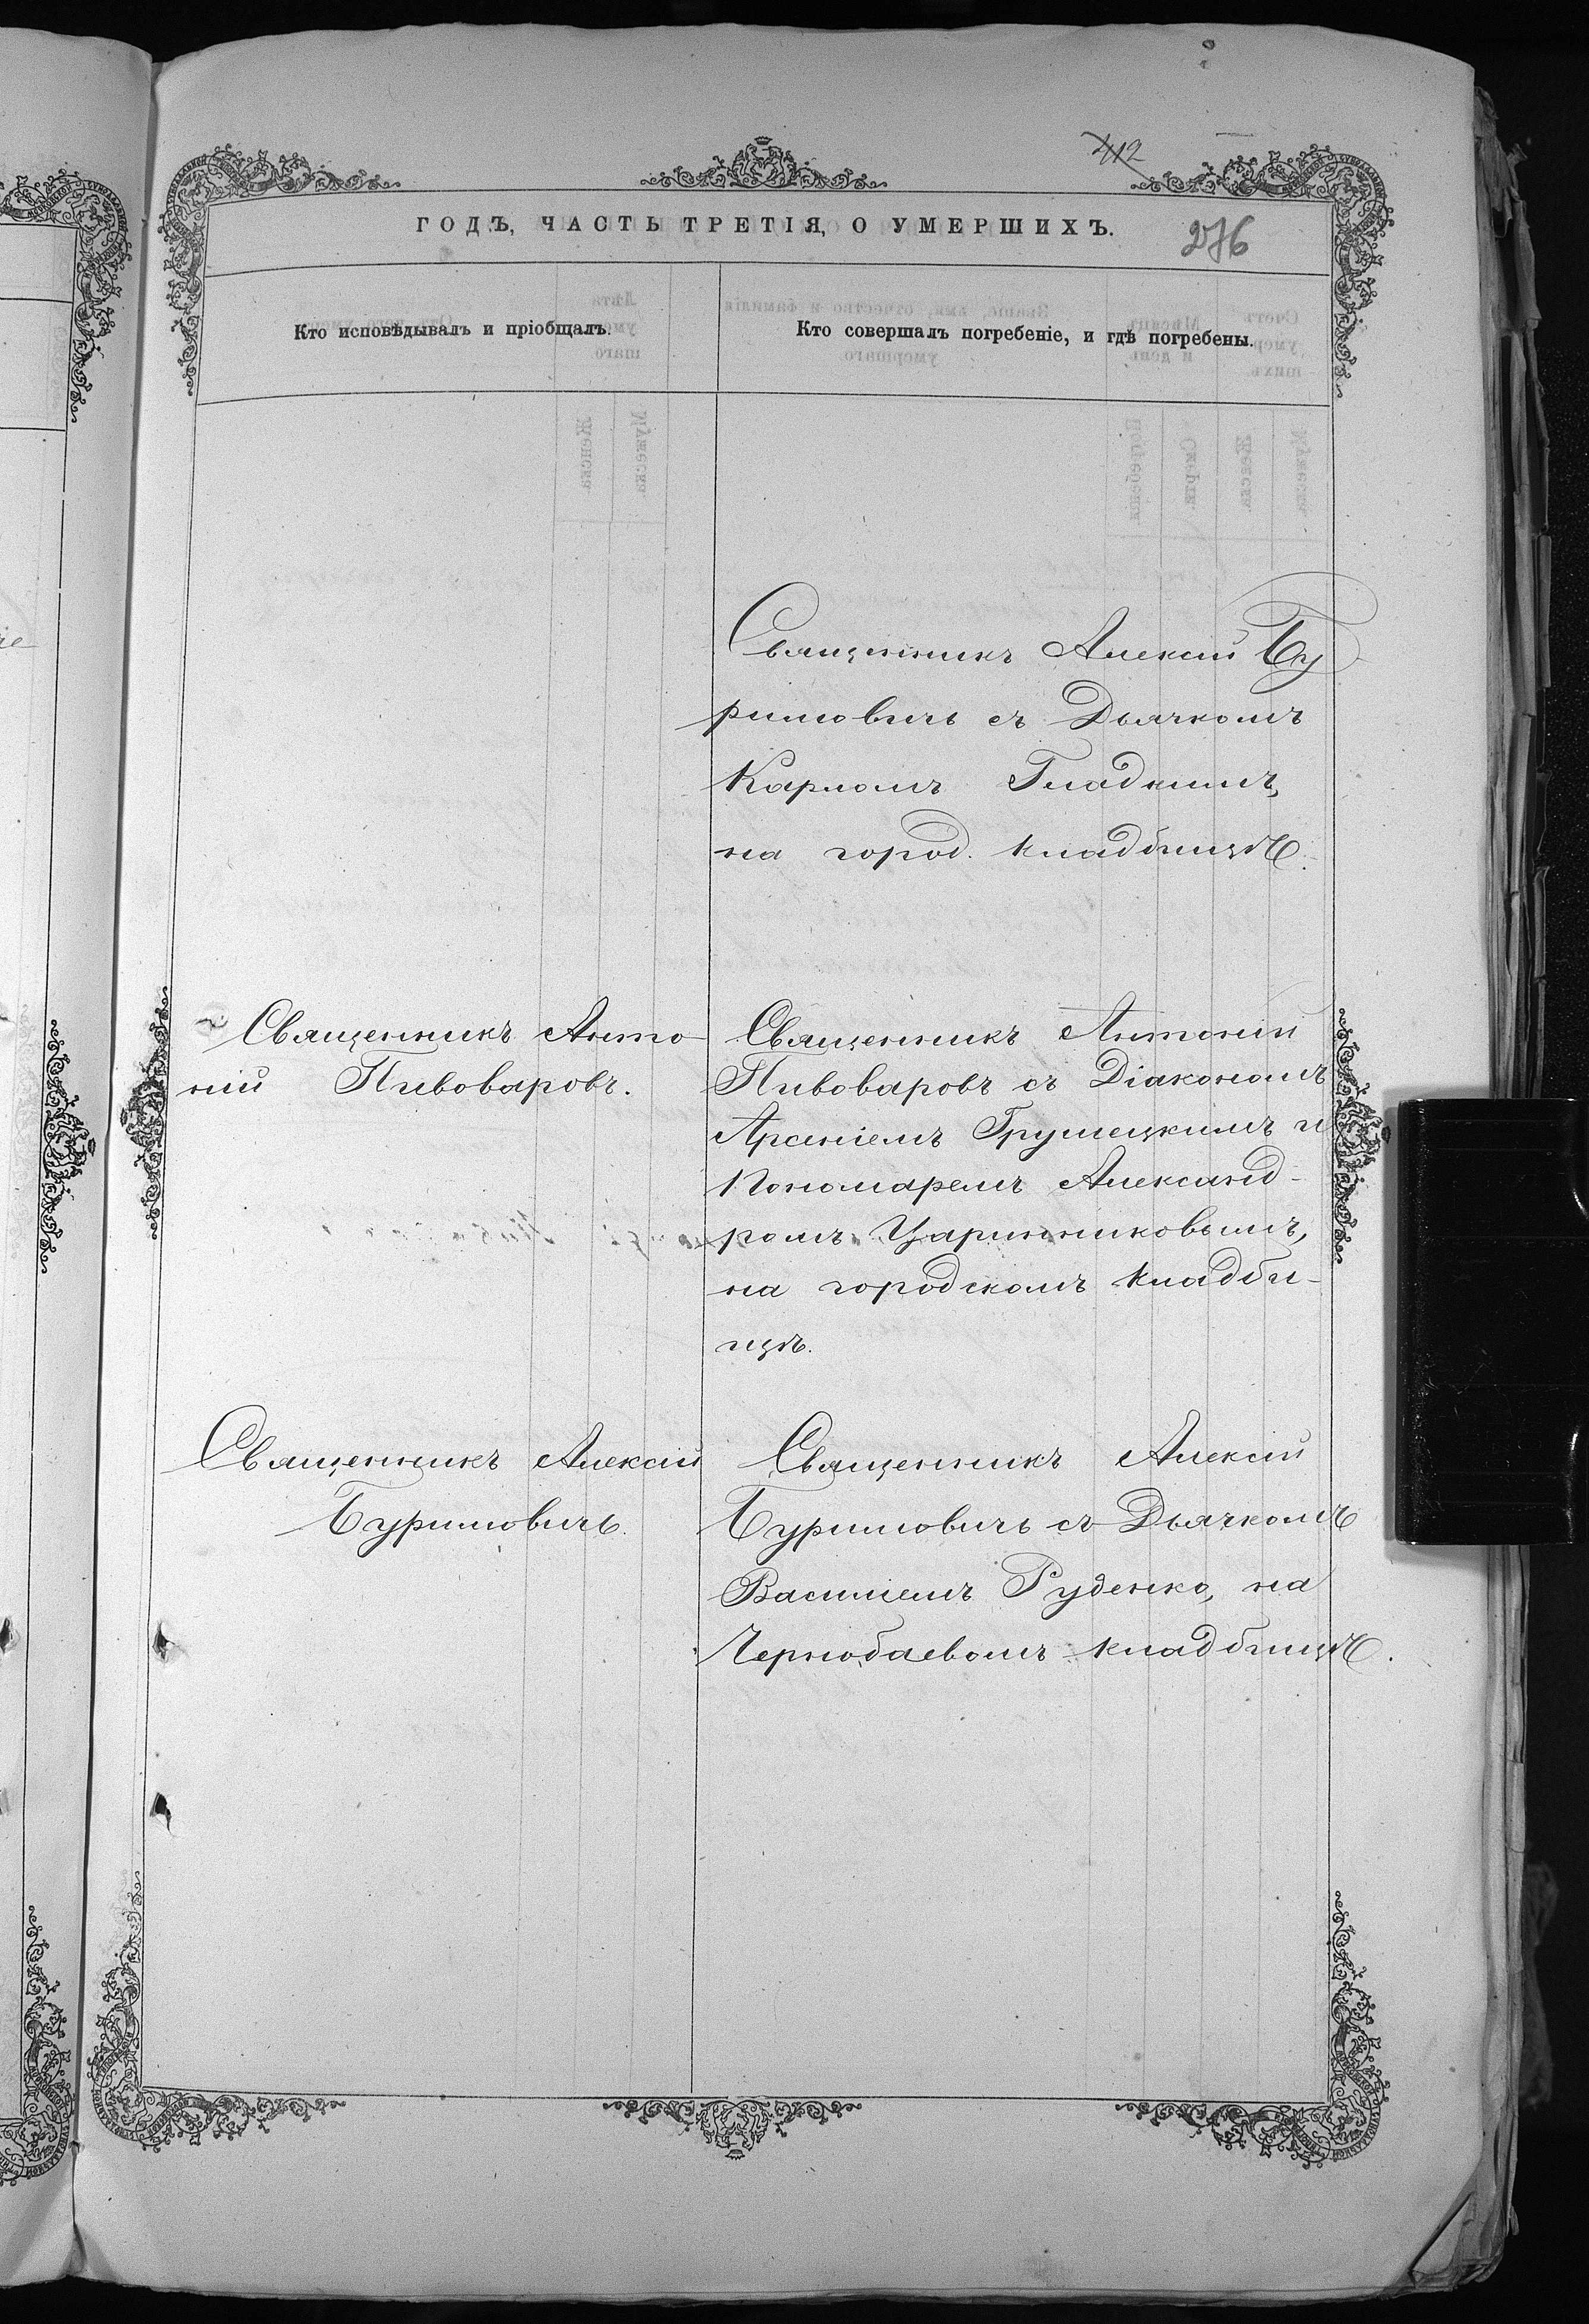 412
ГОДЪ, ЧАСТЬ ТРЕТІЯ, О УМЕРШИХЪ.
276
Кто исповѣдывалъ и пріобщалъ.
Кто совершалъ погребеніе, и гдѣ погребены.
Священникъ Алексій Бу
римовичъ съ Дьячкомъ
Карпомъ Гладкимъ,
на город. кладбищѣ.
Священникъ Анто
ній Пивоваровъ.
Священникъ Антоній
Пивоваровъ съ Діакономъ
Арсеніемъ Грушецкимъ и
Пономаремъ Александ-
ромъ Царинниковымъ,
на городскомъ кладби-
щѣ.
Священникъ Алексій
Буримовичъ.
Священникъ Алексій
Буримовичъ съ Дьячкомъ
Василіемъ Руденко, на
Чернобаевомъ кладбищѣ.